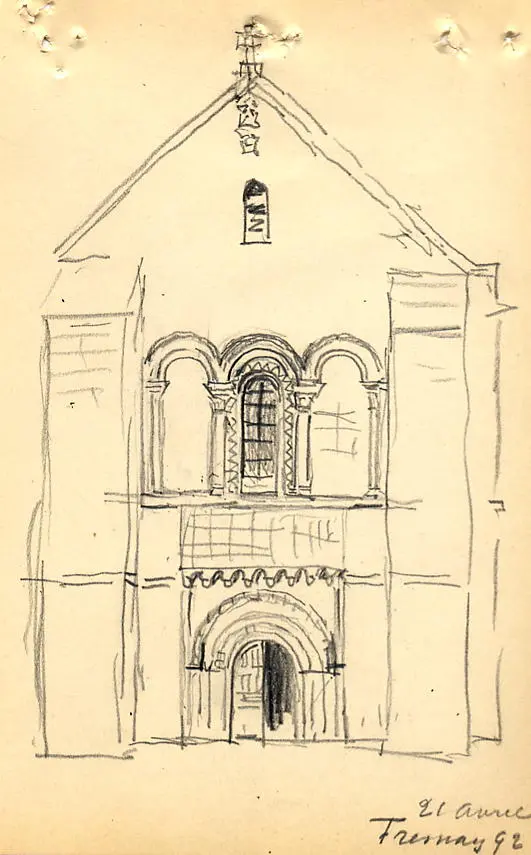 21 Avril
Fresnay 92